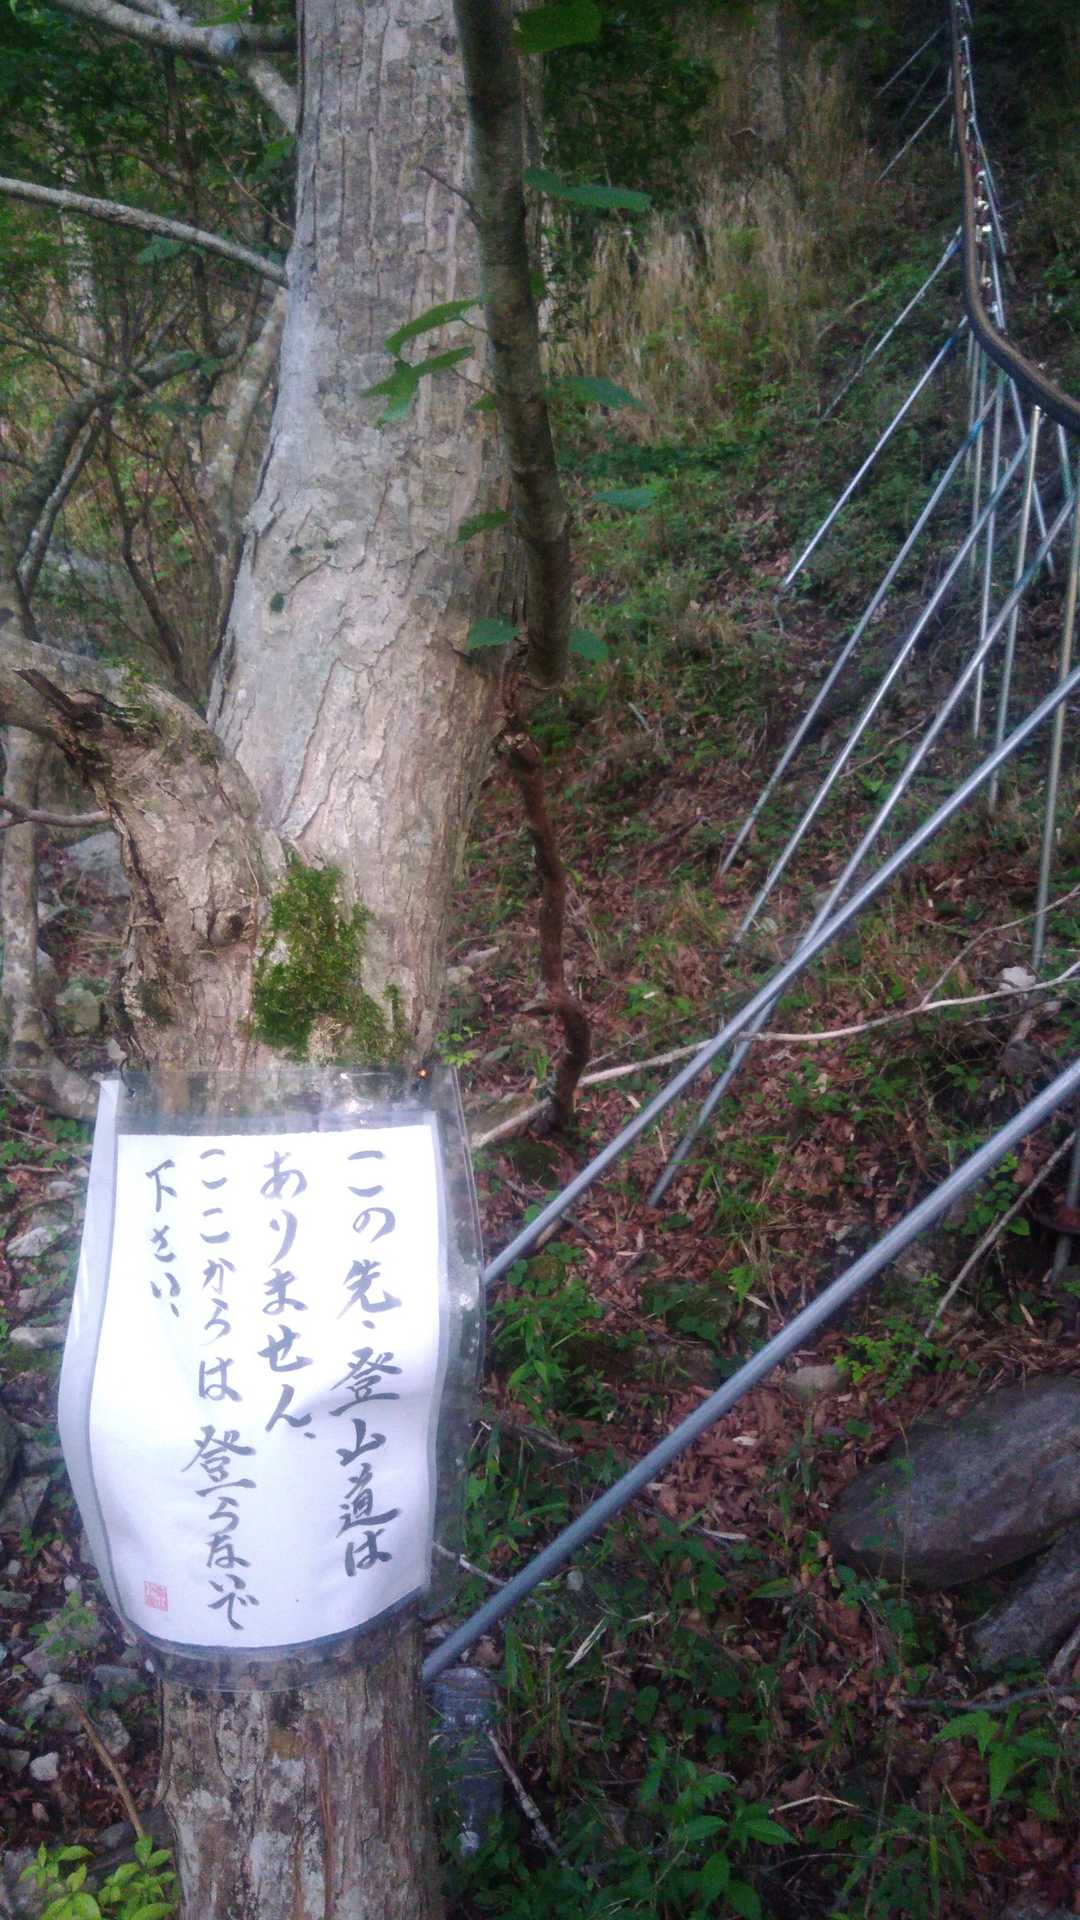 この先、登山道は
ありません、
ここからは登らないで
下さい、